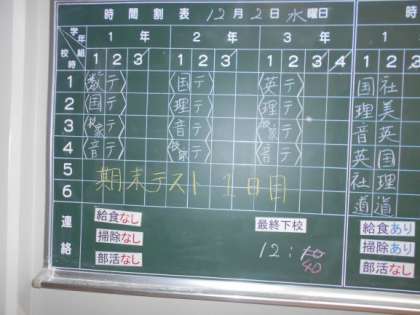 時間割表 12月2日水曜日
学年 組 校時 1年 2年 3年 1
1 2 3 1 2 3 1 2 3 4 1 2
1 〈数テ〉 〈国テ〉 〈英テ〉 国 社
2 〈国テ〉 〈理テ〉 〈理テ〉 理 美
3 〈技家テ〉 〈音テ〉 〈技家テ〉 音 英
4 〈音テ〉 〈技家テ〉 〈音テ〉 英 国
5 社 理
6 期末テスト 1日目 道 道
連絡
給食なし 最終下校 給食あり
掃除なし 12:40 掃除あり
部活なし 部活なし